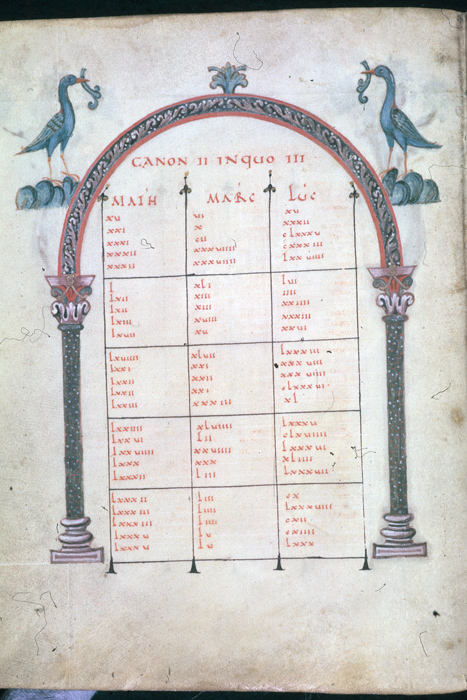 CANON II IN QUO III
MATH MARC LUC
xv vi xv
xxi x xxxii
xxxi cii clxxxv
xxxii xxxviiii cxxxiii
xxxii xxxviiii lxxviiii
l xli lvi
lxii xiii iiii
lxii xiii xxiiii
lxiii xviii xxxiii
lxvii xv xxvi
lxviiii xlvii lxxxiii
lxxi xxi xxxviii
lxxii xxii xxxviiii
lxxii xxii clxxxvi
lxxiii xxiii xl
lxxiiii xlviiii lxxxv
lxxvi lii clxviiii
lxxviiii xxviiii lxxxvi
lxxx xxx xliiii
lxxxii liii lxxxvii
lxxxii liii cx
lxxxiii liiii lxxxvii
lxxxiii liiii cxii
lxxxv lv cxiiii
lxxxv lv